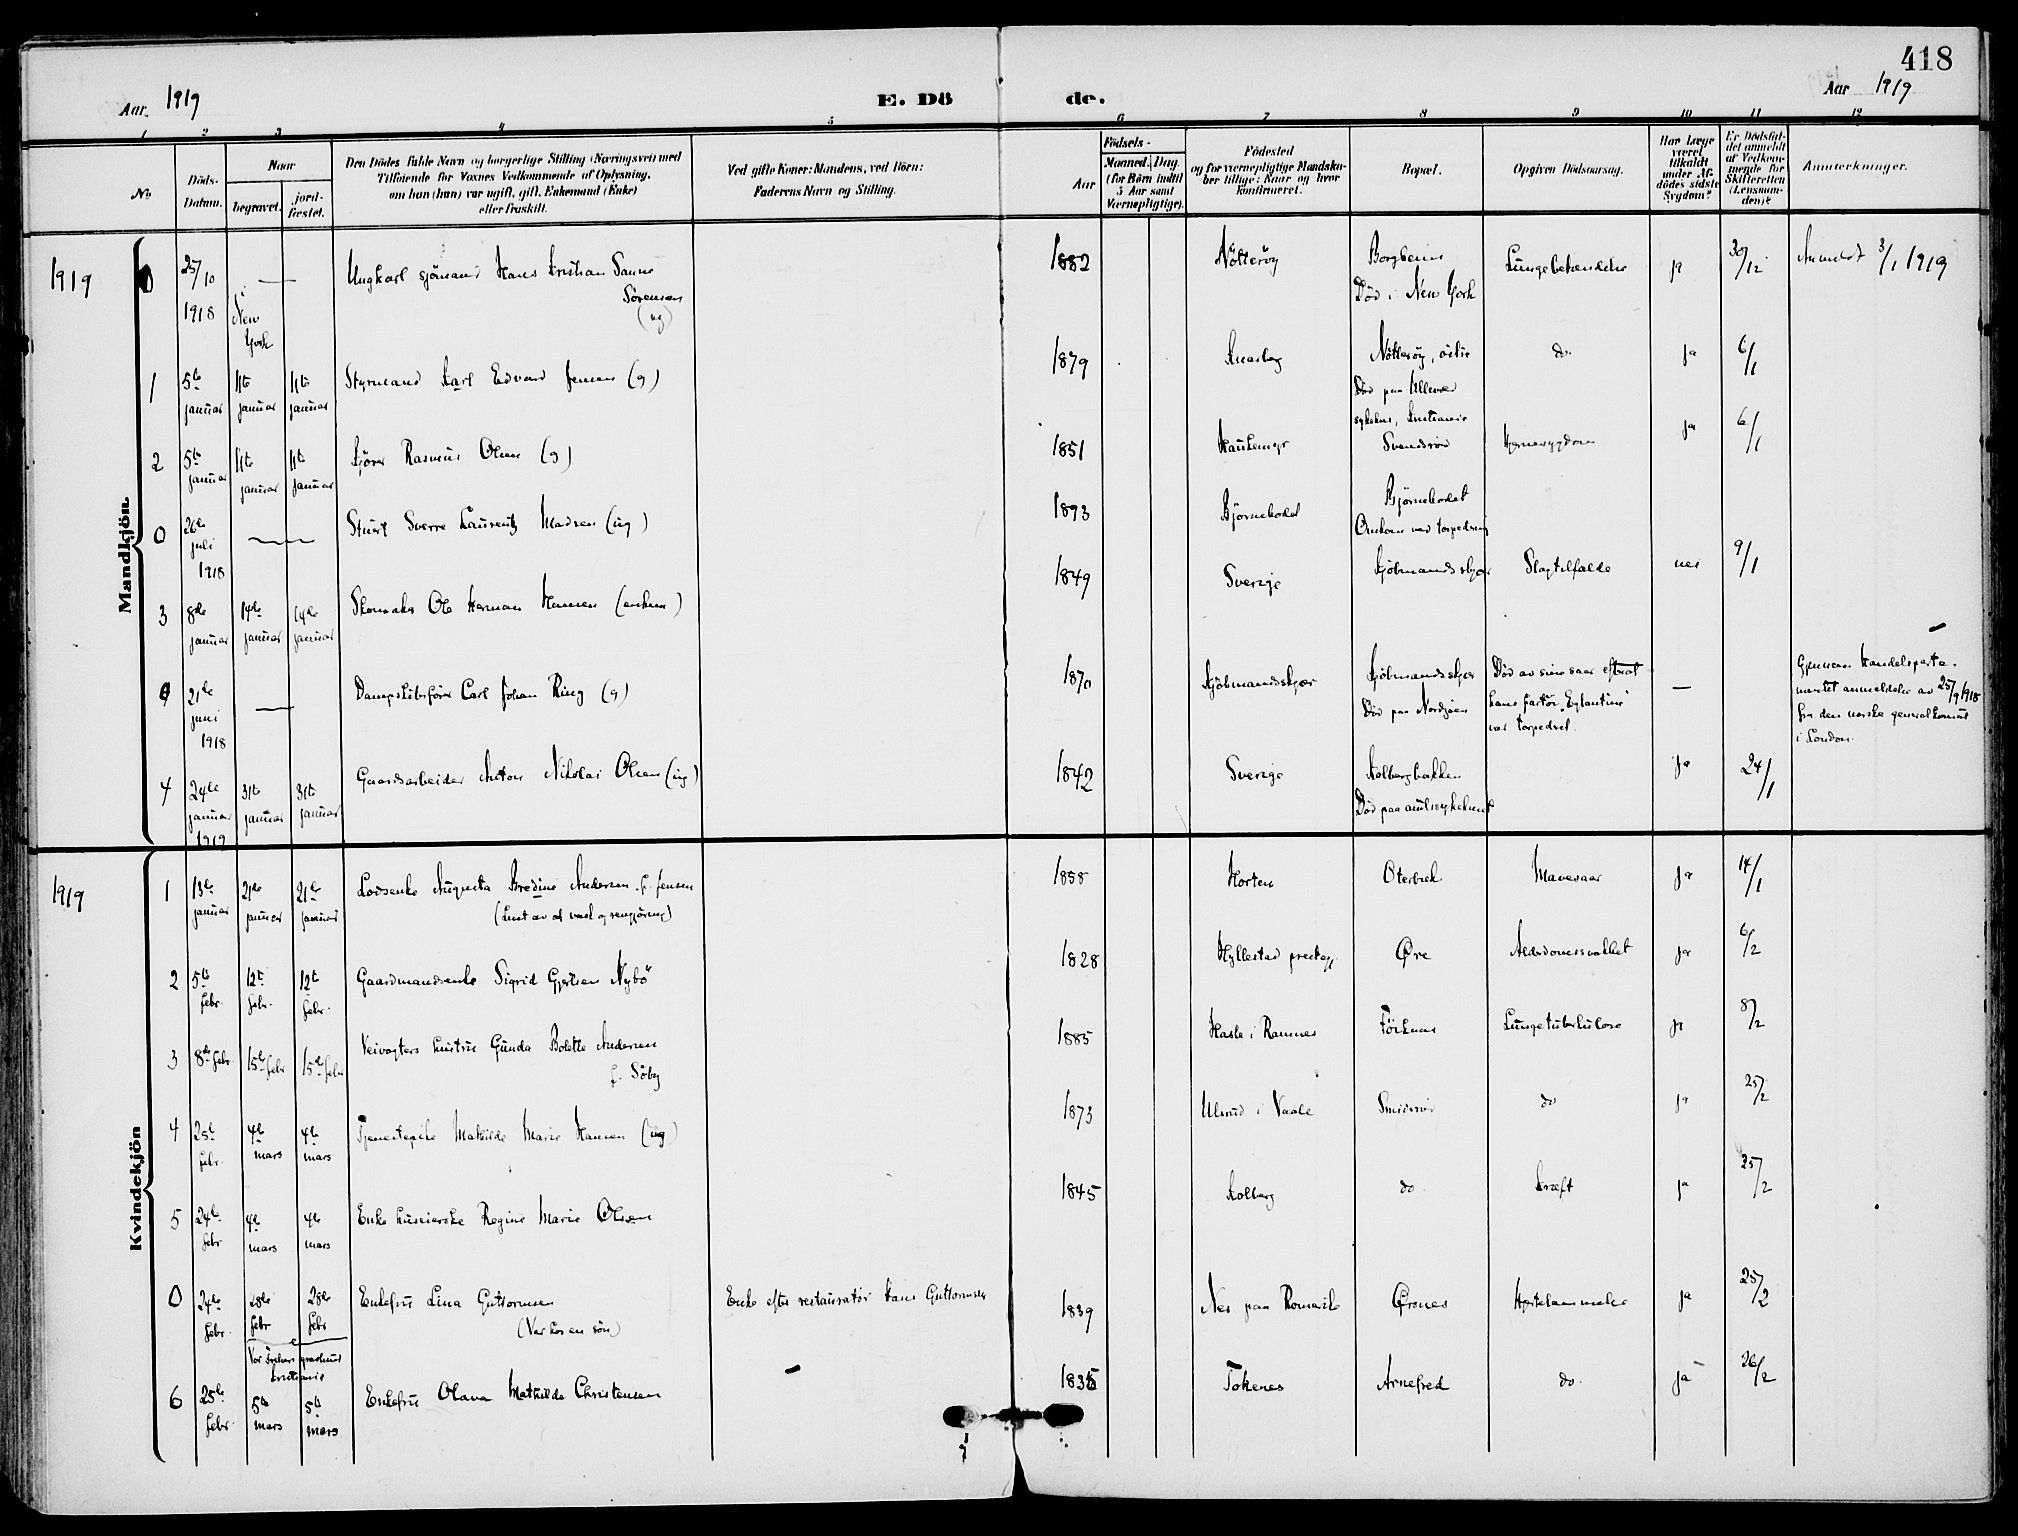 418
Aar 1919
E. Dö de.
Aar 1919
1 2 3 4 5 6 7 8 9 10 11 12
No
Döds-
Datum.
Naar
begravet.
jord-
fæstet.
Den Dödes fulde Navn og borgerlige Stilling (Næringsvei) med
Tilföiende for Voxnes Vedkommende af Oplysning,
om han (hun) var ugift, gift, Enkemand (Enke)
eller fraskilt.
Ved gifte Koner: Mandens, ved Börn:
Faderens Navn og Stilling.
Födsels-
Aar
Maaned. Dag.
(for Börn indtil
5 Aar samt
Værnepligtige).
Födested
og for værnepligtige Mandska-
ber tillige: Naar og hvor
konfirmeret.
Bopæl.
Opgiven Dödsaarsag.
Har Læge
været
tilkaldt
under Af-
dödes sidste
Sygdom?
Er Dödsfal-
det anmeldt
af Vedkom-
mende for
Skifteretten
(Lensman-
den)?
Anmerkninger.
Mandkjön
1919
0 25/10 1918 i New York — Ungkarl sjömand Hans Kristian Sanne Sörensen (ug) 1882 Nötteröy Borgheim Död i New York Lungebetændelse ja 30/12 Anmeldt 3/1 1919
1 5te januar 11te januar 11te januar Styrmand Karl Edvard Jensen (g) 1879 Nötteröy, Död paa Ullevaal sykehus, Kristiania do. ja 6/1
2 5te januar 11te januar 11te januar Rasmus Olsen (g) 1851 Haukemyr Svendsröd Hjernesygdom ja 6/1
0 26de juli 1918 — Stuert Sverre Laurentz Madsen (ug) 1893 Björnebodet Björnebodet Omkom ved torpedering
3 8de januar 14de januar 14de januar Skomaker Ole Herman Hansen (enkem) 1849 Sverige Kjöbmandskjær Slagtilfælde nei 9/1
0 21de juni 1918 — Dampskibsförer Carl Johan Ring (g) 1870 Kjöbmandskjær Kjöbmandskjær Död paa Nordsjöen Död av sine saar efterat hans fartöi „Eglantine" var torpedret. — Gjennem Handelsdeparte- mentet anmeldelse av 25/9 1918 fra den norske generalkonsul i London.
4 24de januar 1919 31te januar 31te januar Gaardsarbeider Anton Nikolai Olsen (ug) 1842 Sverige Kolbergbakken Död paa amtssykehuset ja 24/1
Kvindekjön
1919
1 13de januar 21de januar 21de januar Lodsenke Augusta Bredine Andersen f. Jensen (Levet av at vaske og rengjöring) 1858 Horten Oterbæk Mavesaar ja 14/1
2 5te febr. 12te febr. 12te febr. Gaardmandsenke Sigrid Gjertsen Nybö 1828 Hyllestad prestegj. Öre Alderdomssvakhet ja 6/2
3 8de febr 15de febr 15de febr Veivogters hustru Gunda Bolette Andersen f. Söby 1885 Hasle i Ramnes Lungetuberkulose ja 8/2
4 25de febr. 4de mars 4de mars Tjenestepike Mathilde Marie Hansen (ug) 1873 Ulsrud i Vaale Smidsröd do ja 25/2
5 24de febr 4de mars 4de mars Enke huseierske Regine Marie Olsen 1845 Kolberg do Kræft ja 25/2
0 24de febr. 28de febr 28de febr Vor Frelsers gravlund Kristiania Enkefru Lina Guttormsen (Var hos en sön) Enke efter restauratör Hans Guttormsen 1839 Nes paa Romerike Örsnes Hjertelammelse ja 25/2
6 25de febr. 5te mars 5te mars Enkefru Olava Mathilde Christensen 1835 Tokenes Arnefred do. ja 26/2